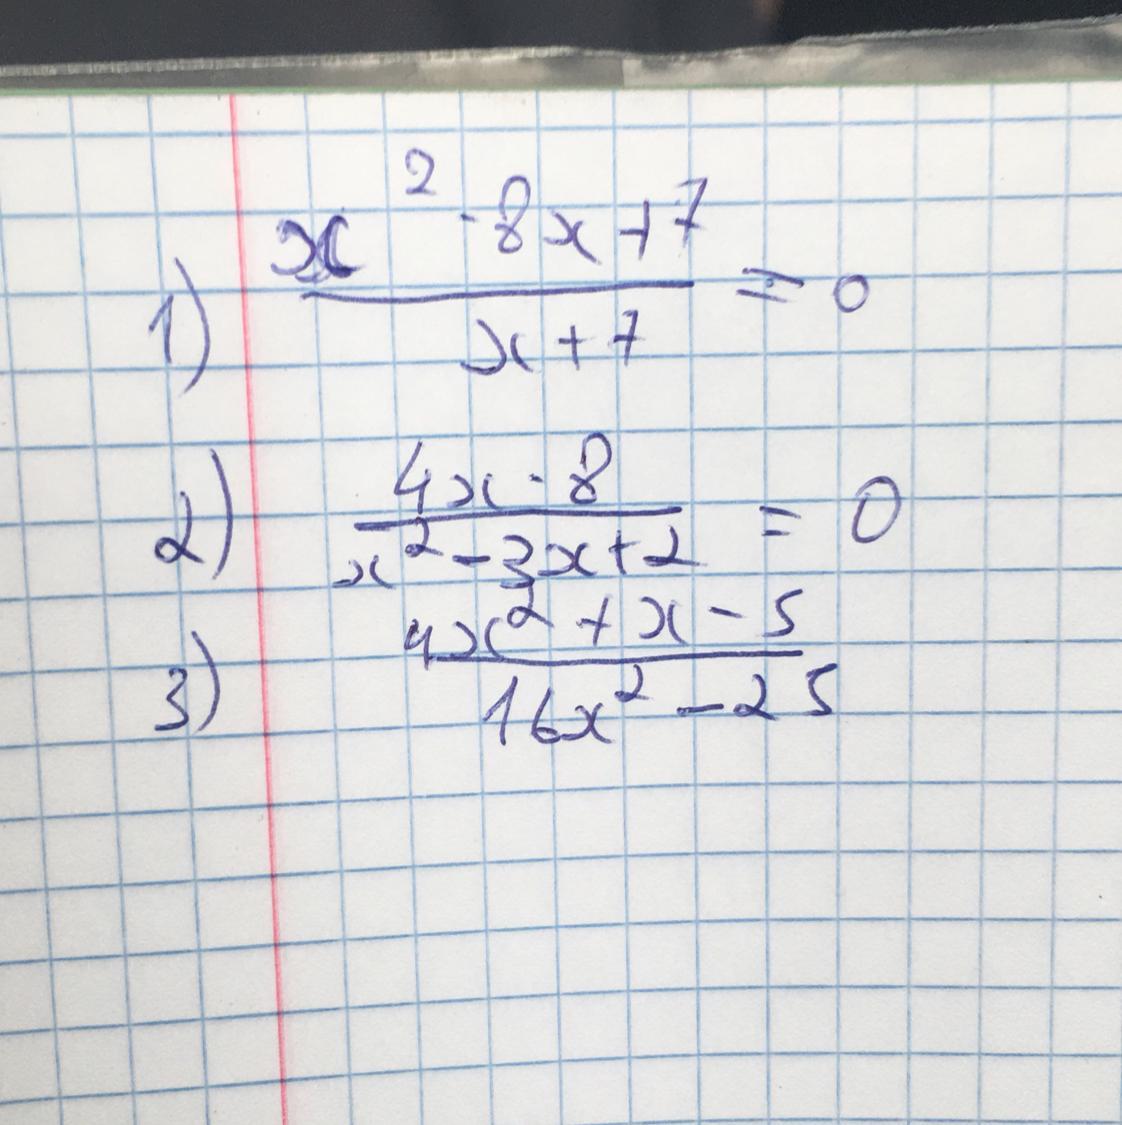 1) x² - 8x + 7
x + 7 = 0
2) 4x - 8
x² - 3x + 2 = 0
3) 4x² + x - 5
16x² - 25